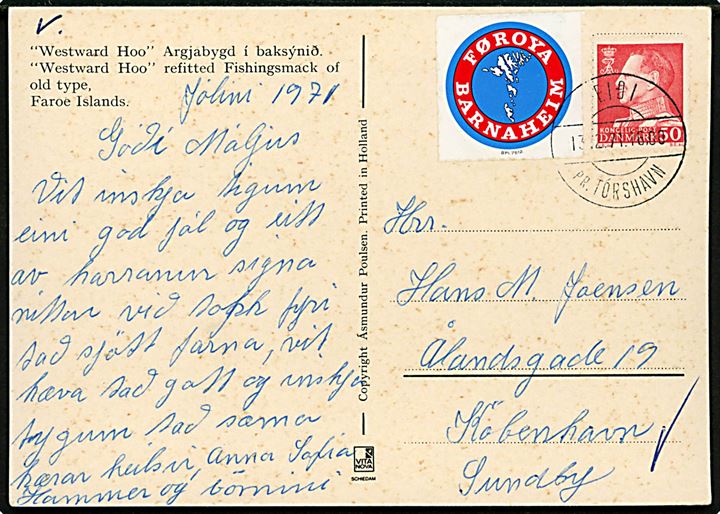 v.
"Westward Hoo" Argjabygd í baksýnið.
"Westward Hoo" refitted Fishingsmack of
old type,
Faroe Islands.
Jólini 1971
Góði Magjus
Vit inskja tygum
eini god jól og eitt
av harranum signa
nittar vid takk fyri
tad sjött farna, vit
hava tad gott og inskja
tygum tad sama
kærar heilsir, Anna Sofia
Hammer og börnini
Copyright Ásmundur Poulsen. Printed in Holland
VITA
NOVA
SCHIEDAM
FØROYA
BARNAHEIM
KONGELIG POST
DANMARK 50
EIDI
13.12.71
PR. TÓRSHAVN
Hrr.
Hans M. Joensen
Ålandsgade 19
København
Sundby